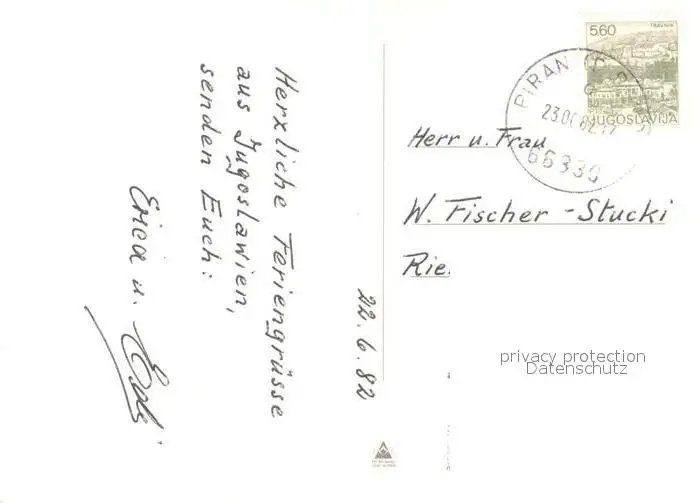 Herzliche Feriengrüsse
aus Jugoslawien,
senden Euch:
Erica u.
22.6.82
5.60
TRAVNIK
JUGOSLAVIJA
PIRAN
66330
Herr u. Frau
W. Fischer-Stucki
Rie.
privacy protection
Datenschutz